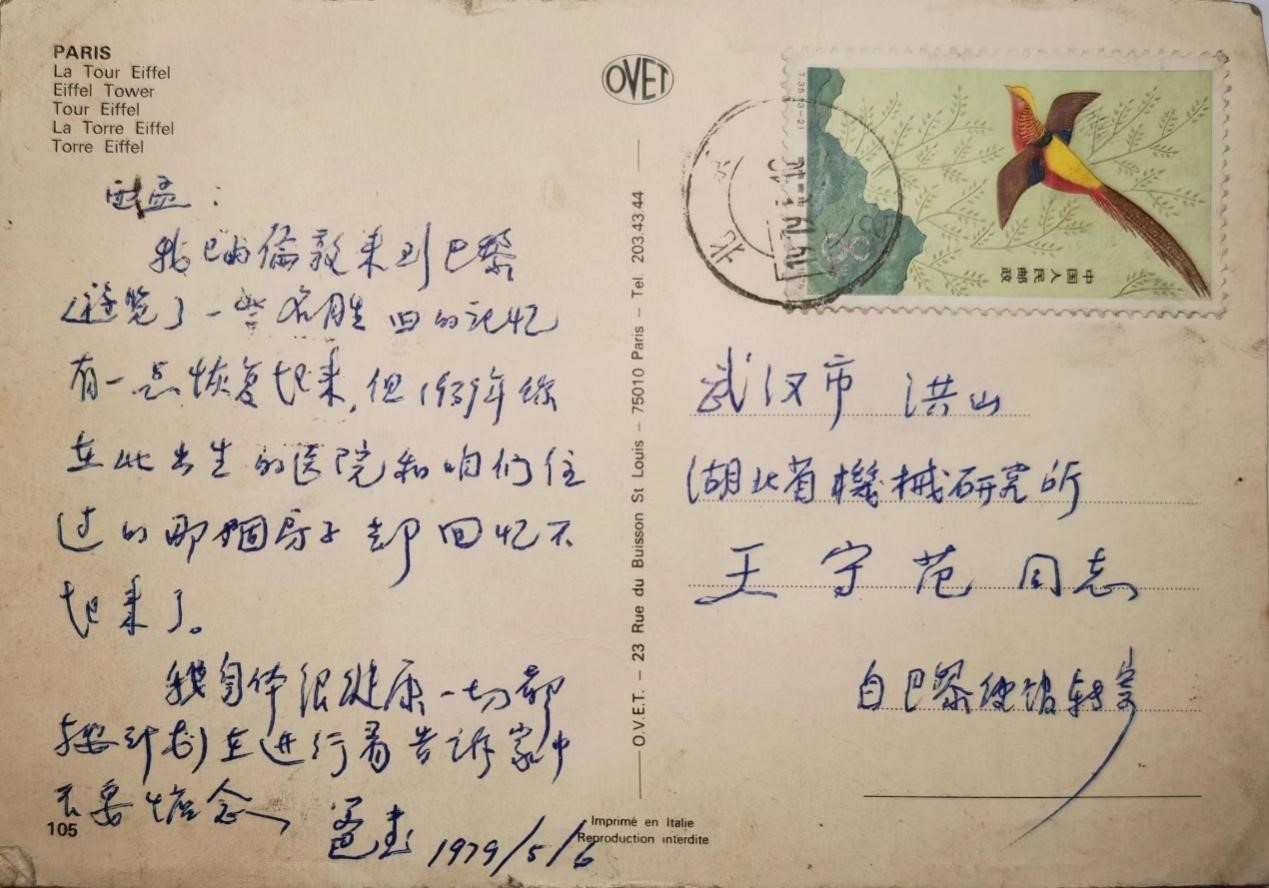 PARIS
La Tour Eiffel
Eiffel Tower
Tour Eiffel
La Torre Eiffel
Torre Eiffel
OVET
我已由倫敦来到巴黎
遊览了一些名胜 旧的记忆
有一点恢复起来,但1939年你
在此出生的医院和咱们住
过的那個房子却回忆不
起来了。
我身体很健康 一切都
按计划在进行着 告诉家中
不要惦念
爸 1979/5/6
105
O.V.E.T. – 23 Rue du Buisson St Louis – 75010 Paris – Tel. 203.43.44
Imprimé en Italie
Reproduction interdite
中国人民邮政
8
北京
武汉市 洪山
湖北省機械研究所
王守范同志
自巴黎使馆转寄